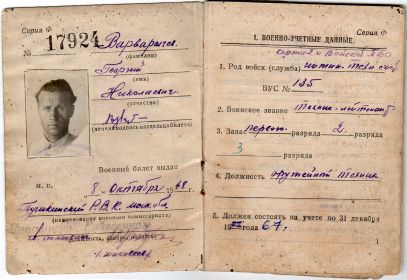 Серия Ф
№ 17924
Варварычев
(фамилия)
Георгий
(имя)
Николаевич
(отчество)
(личная подпись владельца билета)
Военный билет выдан
М. П. 8 октября 1948 г.
Пушкинский Р.В.К. Москва
(наименование военного комиссариата)
Серия Ф
I. ВОЕННО-УЧЕТНЫЕ ДАННЫЕ
1. Род войск (служба)
ВУС № 135
2. Воинское звание техник-лейтенант
3. Запас разряда 2 разряда
3 разряда
4. Должность оружейной техник
5. Должен состоять на учете по 31 декабря
19 года 67 г.